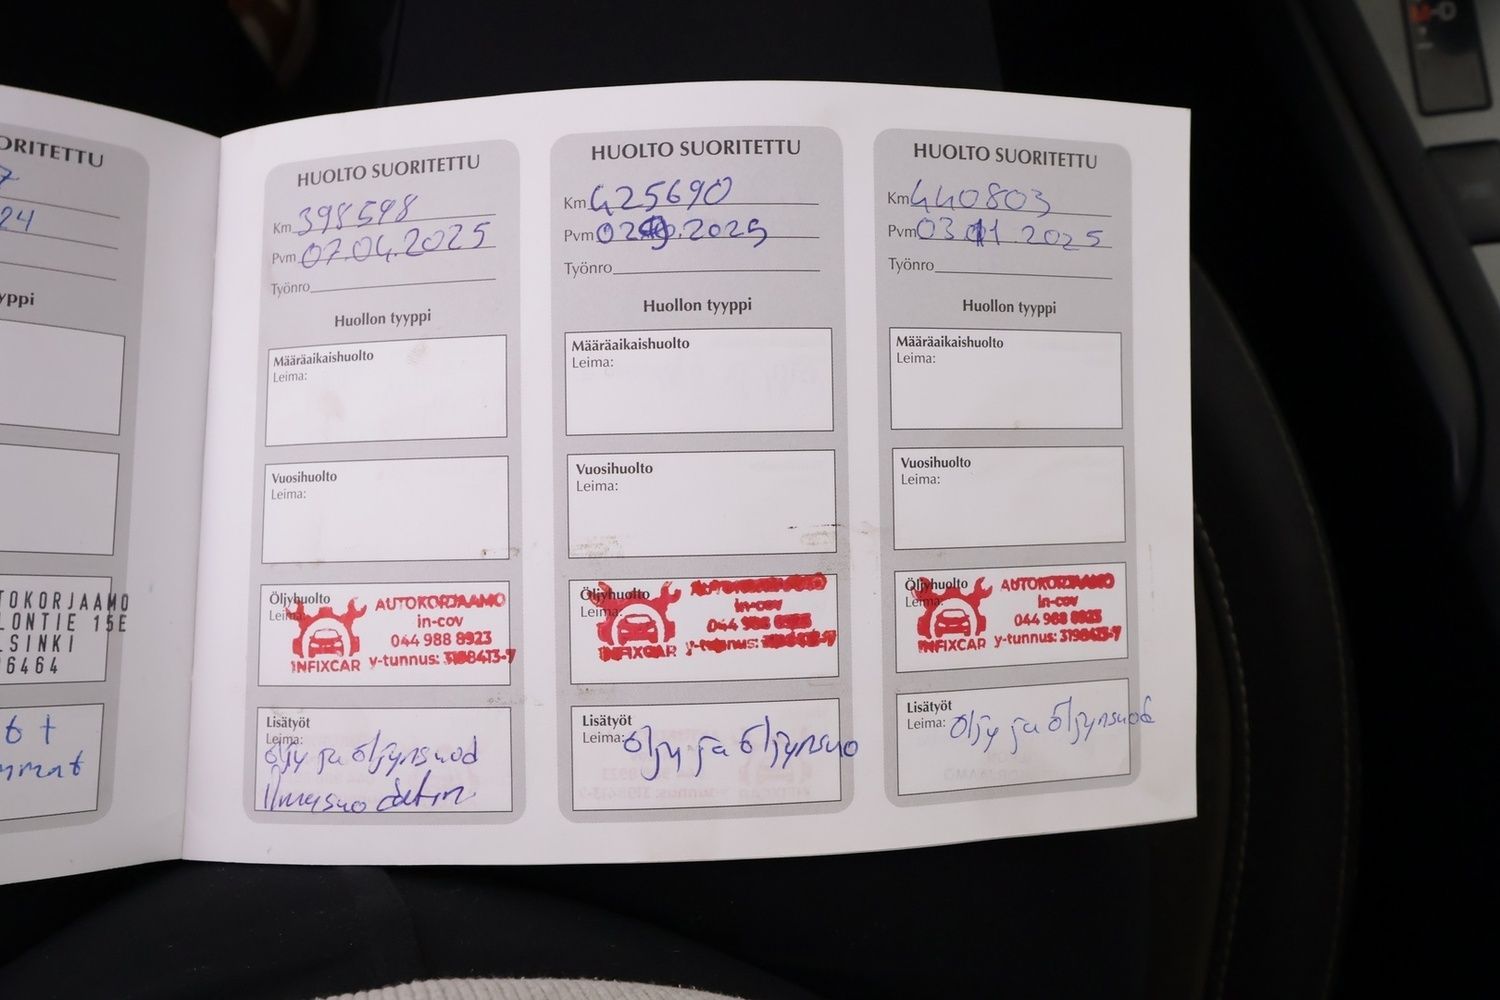 ORITETTU
7
24
yppi
TOKORJAAMO
LONTIE 15E
LSINKI
6464
HUOLTO SUORITETTU
Km 398598
Pvm 07.04.2025
Työnro
Huollon tyyppi
Määräaikaishuolto
Leima:
Vuosihuolto
Leima:
Öljyhuolto
Leima:
AUTOKORJAAMO
in-cov
044 988 8923
INFIXCAR y-tunnus: 3198413-7
Lisätyöt
Leima:
öljy ja öljynsuod
HUOLTO SUORITETTU
Km 425690
Pvm 2025
Työnro
Huollon tyyppi
Määräaikaishuolto
Leima:
Vuosihuolto
Leima:
Öljyhuolto
Leima:
AUTOKORJAAMO
in-cov
044 988 8923
INFIXCAR y-tunnus: 3198413-7
Lisätyöt
Leima: öljy ja öljynsuo
HUOLTO SUORITETTU
Km 440803
Pvm 03.11.2025
Työnro
Huollon tyyppi
Määräaikaishuolto
Leima:
Vuosihuolto
Leima:
Öljyhuolto
Leima:
AUTOKORJAAMO
in-cov
044 988 8923
INFIXCAR y-tunnus: 3198413-7
Lisätyöt
Leima: öljy ja öljynsuod